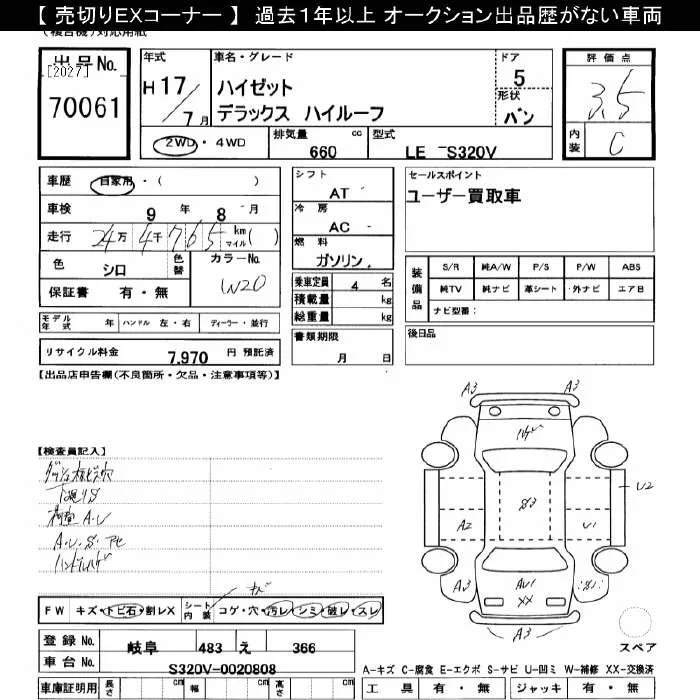 【 売切りEXコーナー 】 過去1年以上 オークション出品歴がない車両
(複合機)対応用紙
出品No.
[2027]
70061
年式
H17/7月
車名・グレード
ハイゼット
デラックス ハイルーフ
ドア
5
形状
バン
評価点
3.5
内装
C
2WD・4WD
排気量 cc
660
型式
LE-S320V
車歴 自家用・( )
車検 9年 8月
走行 24万4千765 km マイル ( )
色 シロ 色替 カラーNo. W20
保証書 有・無
シフト
AT
冷房
AC
燃料
ガソリン
乗車定員 4 名
積載量 kg
総重量 kg
書類期限
月 日
セールスポイント
ユーザー買取車
装備品
S/R 純A/W P/S P/W ABS
純TV 純ナビ 革シート 外ナビ エアB
ナビ型番:
後日品
モデル年式 年 ハンドル 左・右 ディーラー・並行
リサイクル料金 7,970 円 預託済
【出品店申告欄(不良箇所・欠品・注意事項等)】
【検査員記入】
下廻りS
A・U・S・アセ
ハンドルハゲ
FW キズ・トビ石・割レX シート内装 コゲ・穴・汚レ・シミ・破レ・スレ
登録No. 岐阜 483 え 366
車台No. S320V-0020808
車庫証明用 長さ cm 幅 cm 高さ cm
A3 A3
ハゲ
S3
U2
A2
U1
A3
AU1
XX
S1
A3
スペア
A-キズ C-腐食 E-エクボ S-サビ U-凹ミ W-補修 XX-交換済
工具 有・無 ジャッキ 有・無